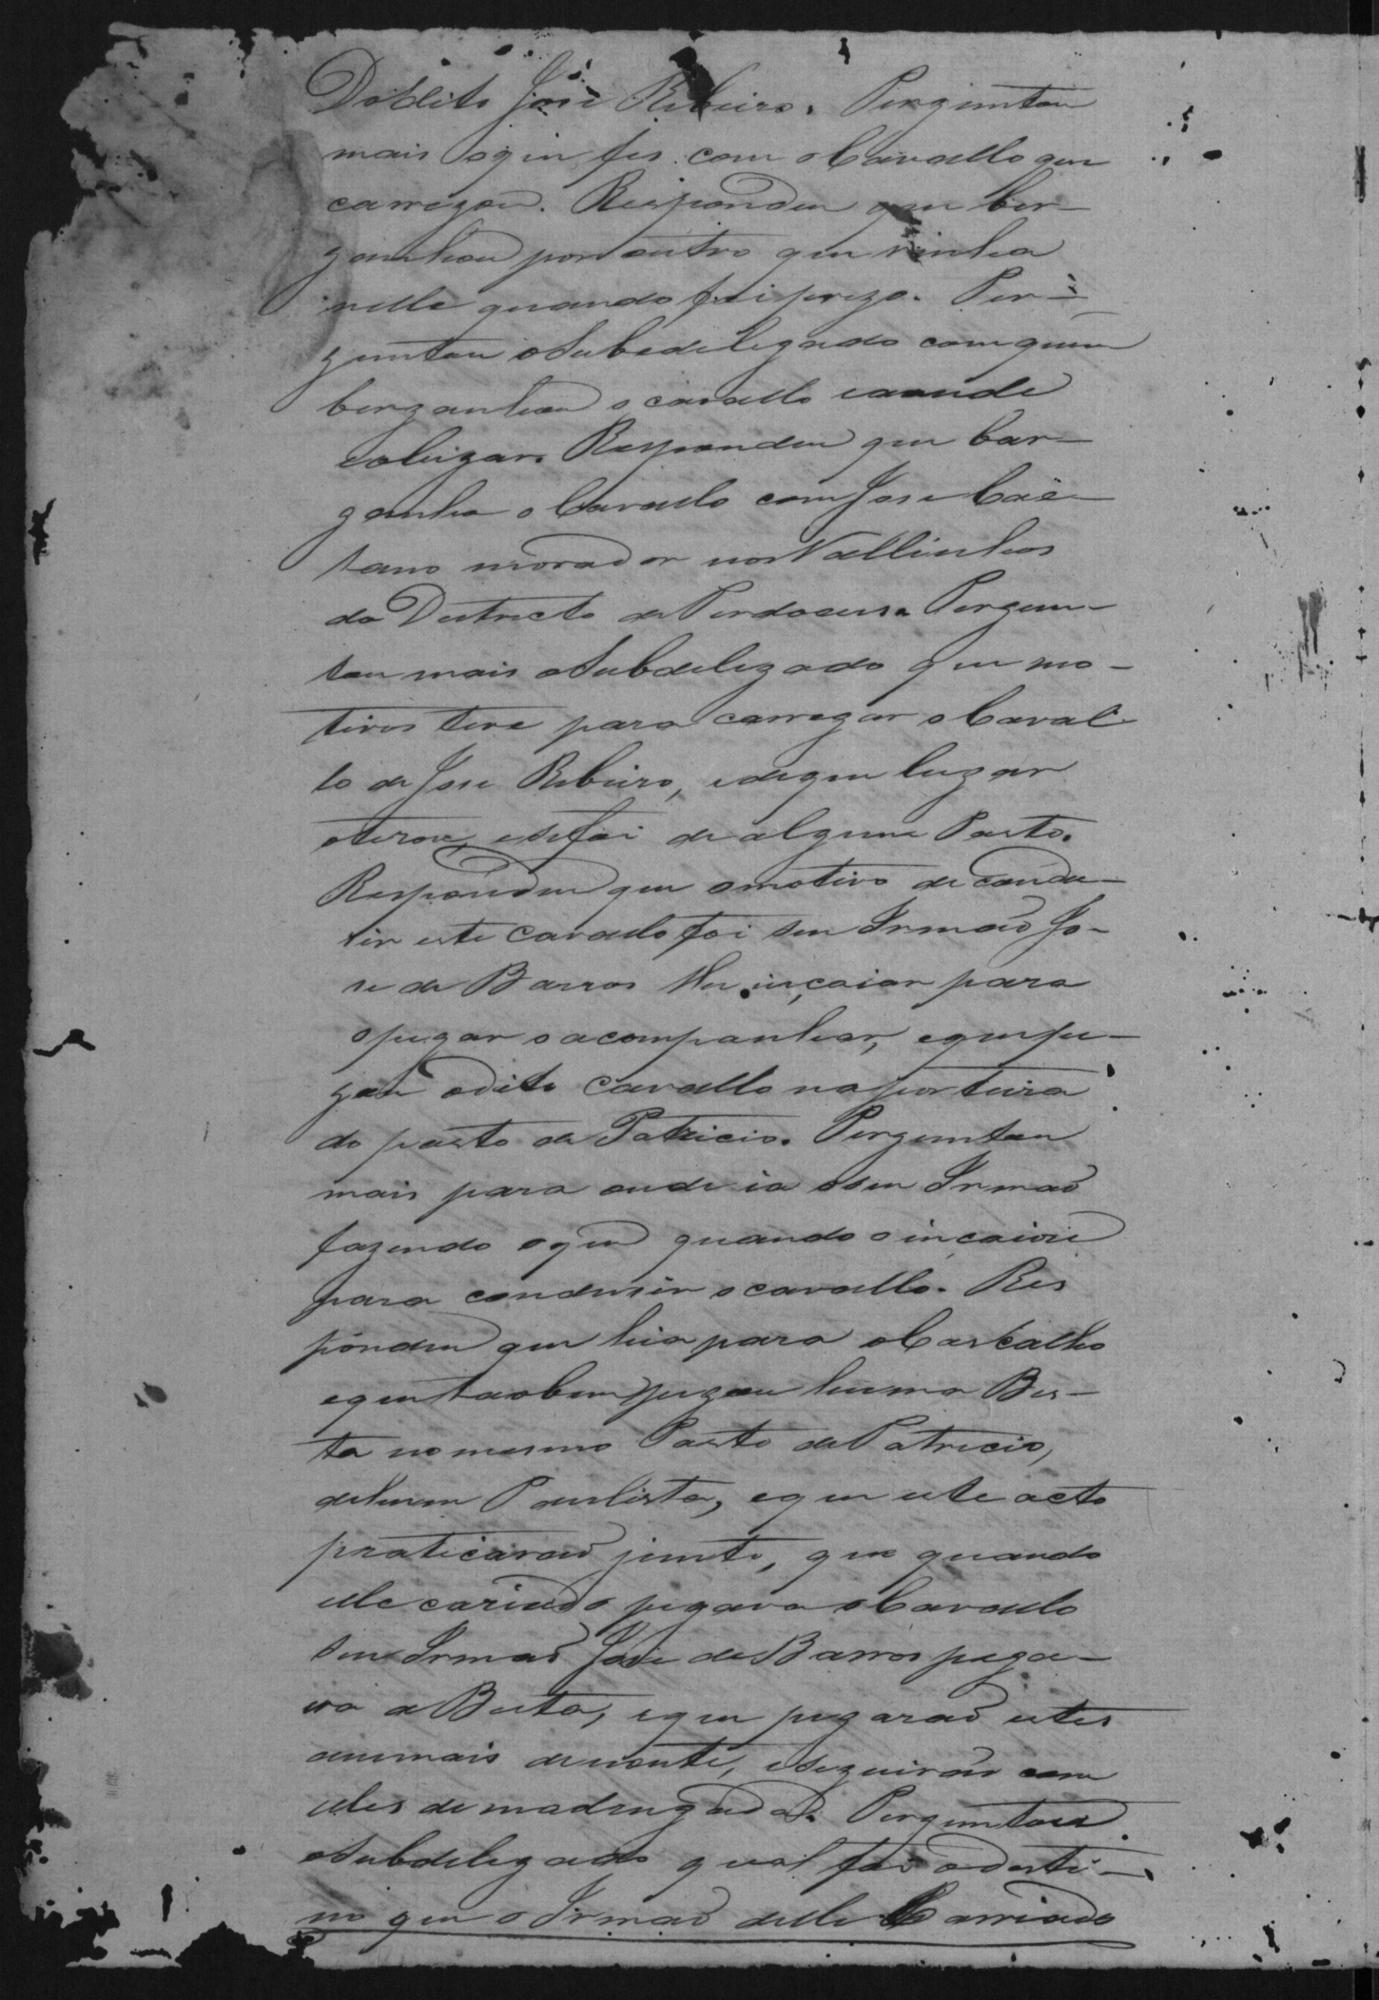 Do dito José Ribeiro. Perguntou
mais oque fes com o Cavallo que
carregou. Respondeu que ber-
ganhou por outro que vinha
nelle quando foi prezo. Per-
guntou o Subedelegado com quem
berganhou o cavallo e aonde
o lugar. Respondeu que bar-
ganha o Cavallo com Jose Cae-
tano morador nos Vallinhos
do Destricto de Perdoens. Pergun-
tou mais o Subdelegado que mo-
tivos teve para carregar o Caval-
lo de Jose Ribeiro, e de que lugar
o tirou, e se foi de algum Pasto.
Respondeu que o motivo de condu-
zir este cavallo foi seu Irmaõ Jo-
se de Barros lhe inçaiar para
o pegar o acompanhar, e que pe-
gou o dito cavallo na porteira
do pasto de Patricio. Perguntou
mais para onde ia o seu Irmaõ
fazendo o que quando o inçaiou
para condusir o cavallo. Res
pondeu que hia para o Cascalho
e que taobem pegou huma Bes-
ta no mesmo Pasto de Patricio,
de hum Paulista, e que este acto
praticaraõ junto, que quando
elle cariado pegava o Cavallo
seu Irmaõ José de Barros pega-
va a Besta, e que pegaraõ estes
animais de noute, e seguiraõ com
elles de madrugada. Perguntou
o Subdelegado qual foi o desti-
no que o Irmaõ delle Carriado